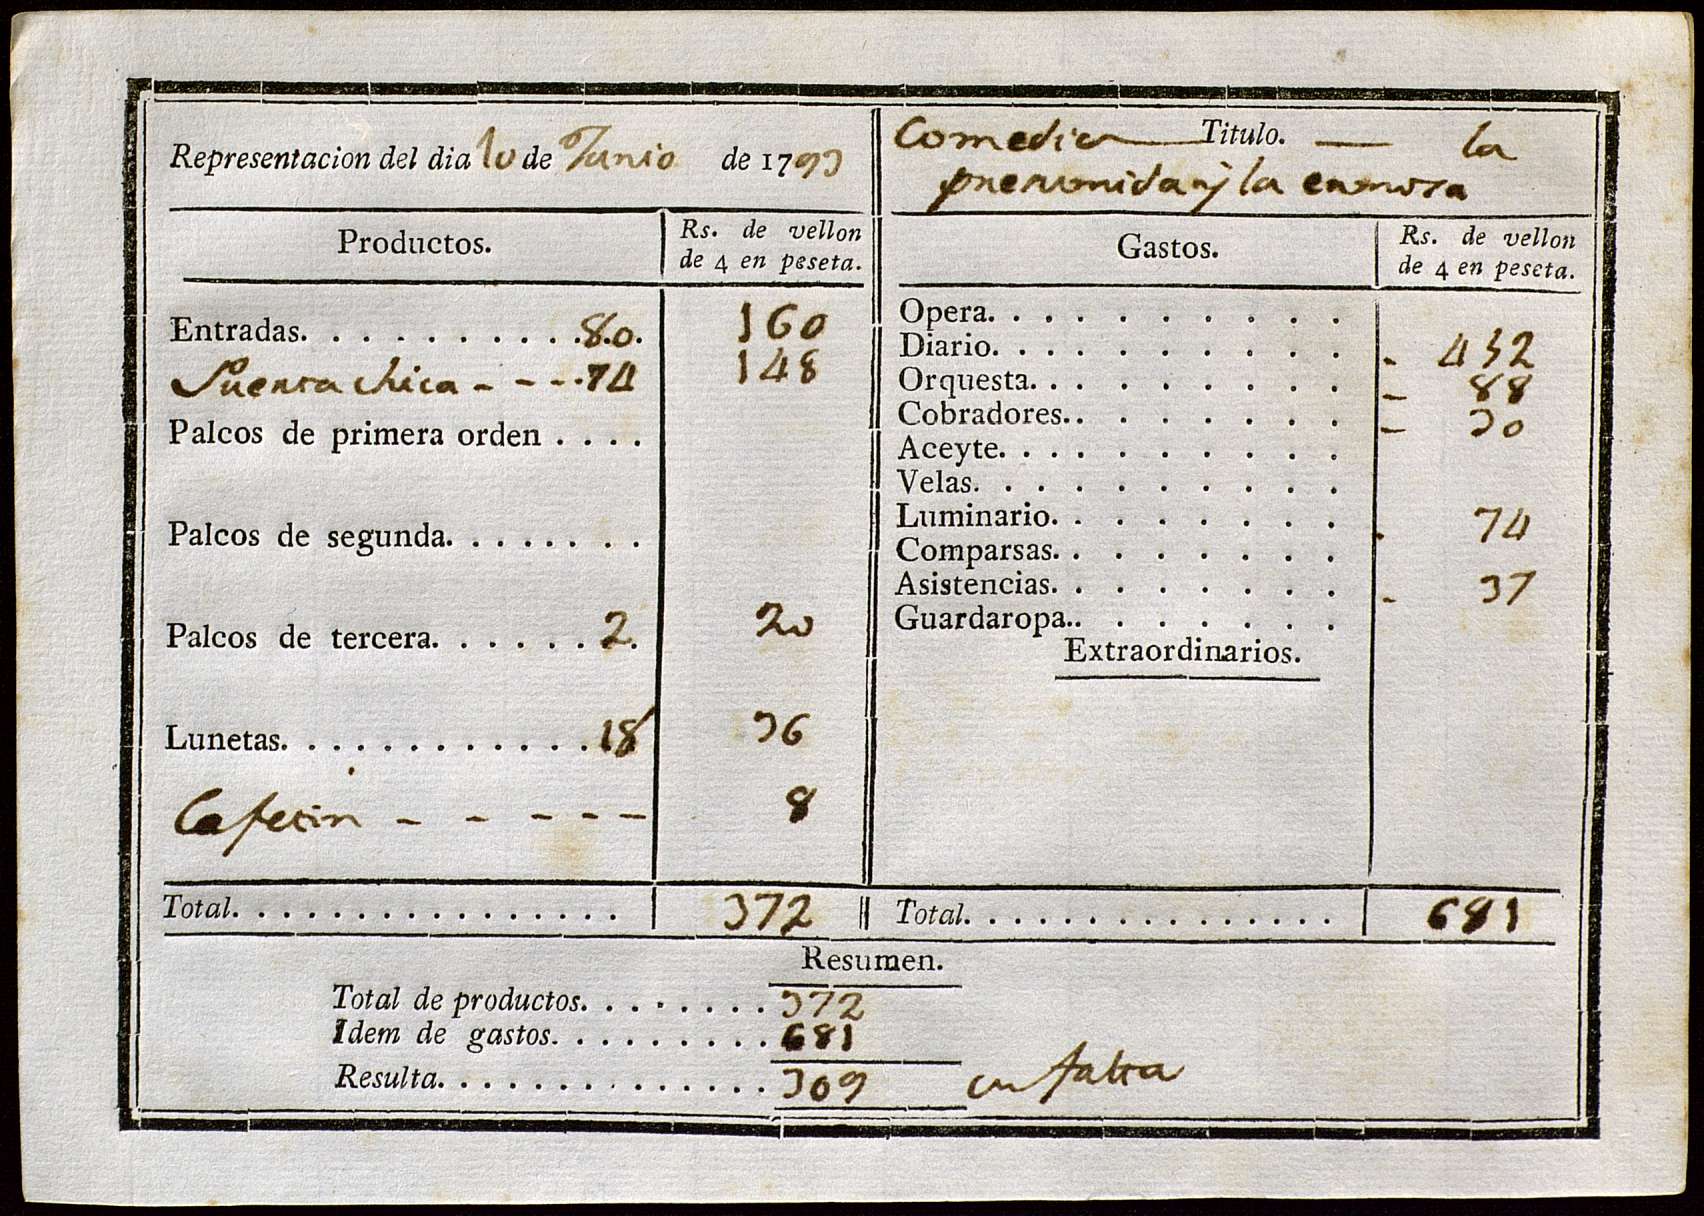 Representacion del dia 10 de Junio de 1793
Comedia Titulo. la
presumida y la ermosa
Productos. Rs. de vellon
de 4 en peseta.
Entradas. . . . . . . . . . . 80. 160
Puerta chica - - - 74 148
Palcos de primera orden . . . .
Palcos de segunda. . . . . . . .
Palcos de tercera. . . . . . 2. 20
Lunetas. . . . . . . . . . . . 18 36
Cafetin - - - - - 8
Total. . . . . . . . . . . . . . . . 372
Gastos. Rs. de vellon
de 4 en peseta.
Opera. . . . . . . . . .
Diario. . . . . . . . . . - 452
Orquesta. . . . . . . . . - 88
Cobradores.. . . . . . . - 30
Aceyte. . . . . . . . . .
Velas. . . . . . . . . .
Luminario. . . . . . . . 74
Comparsas. . . . . . . .
Asistencias. . . . . . . . - 37
Guardaropa.. . . . . . .
Extraordinarios.
Total. . . . . . . . . . . . . . . 681
Resumen.
Total de productos. . . . . . . . 372
Idem de gastos. . . . . . . . . 681
Resulta. . . . . . . . . . . . . . 309 en falta